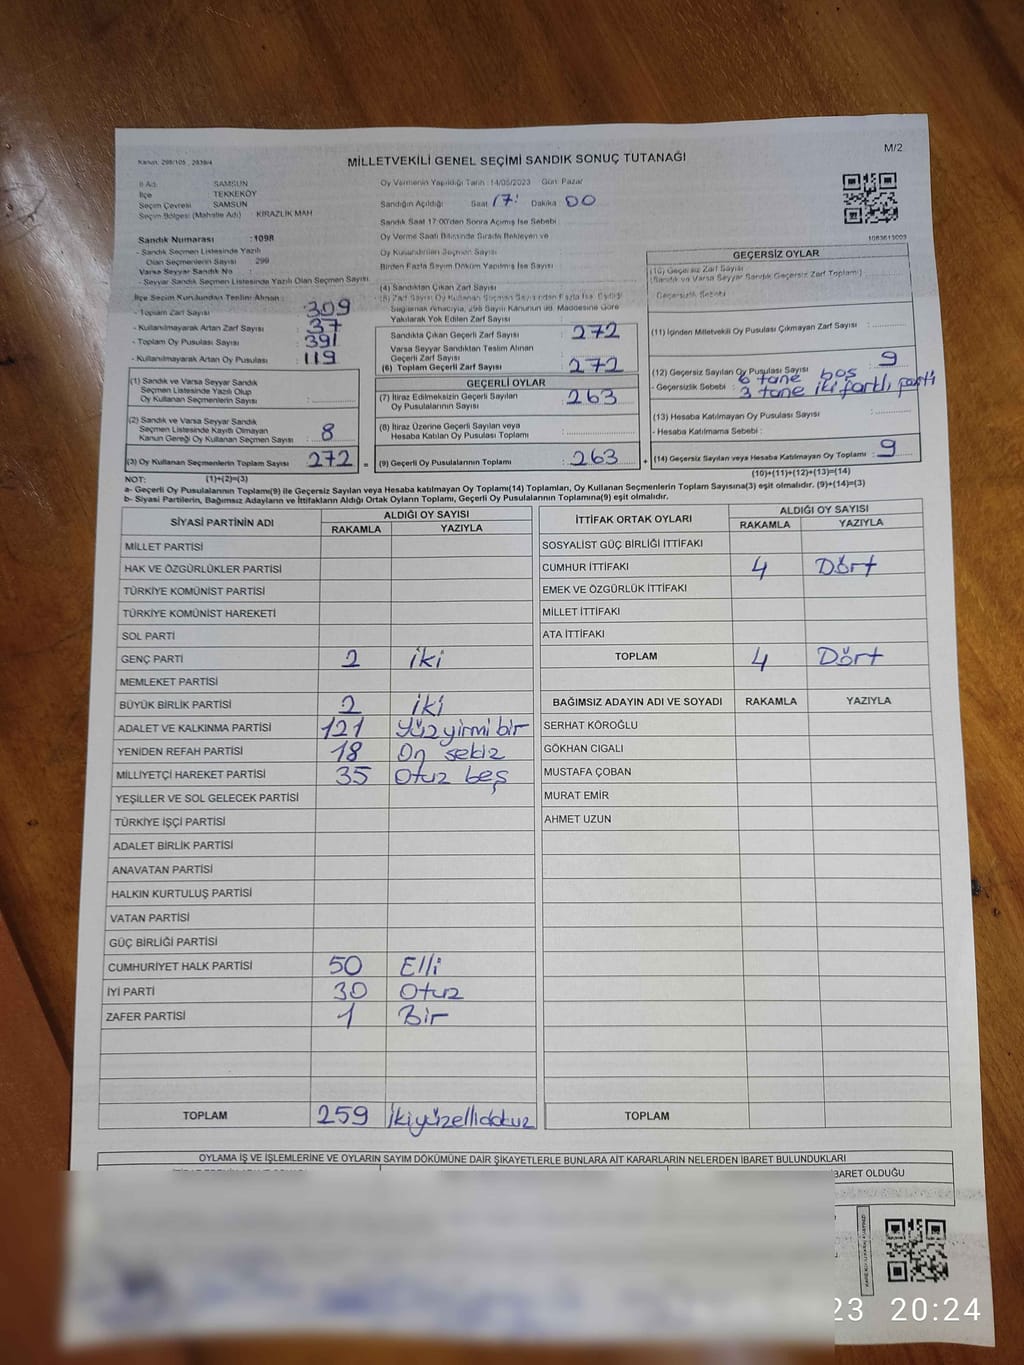 Kanun: 298/105 , 2839/4
MİLLETVEKİLİ GENEL SEÇİMİ SANDIK SONUÇ TUTANAĞI
M/2
İl Adı SAMSUN
İlçe TEKKEKÖY
Seçim Çevresi SAMSUN
Seçim Bölgesi (Mahalle Adı) KİRAZLIK MAH
Sandık Numarası :1098
- Sandık Seçmen Listesinde Yazılı
Olan Seçmenlerin Sayısı 299
Varsa Seyyar Sandık No
- Seyyar Sandık Seçmen Listesinde Yazılı Olan Seçmen Sayısı
İlçe Seçim Kurulundan Teslim Alınan :
- Toplam Zarf Sayısı 309
- Kullanılmayarak Artan Zarf Sayısı 37
- Toplam Oy Pusulası Sayısı 391
- Kullanılmayarak Artan Oy Pusulası 119
(1) Sandık ve Varsa Seyyar Sandık
Seçmen Listesinde Yazılı Olup
Oy Kullanan Seçmenlerin Sayısı :
(2) Sandık ve Varsa Seyyar Sandık
Seçmen Listesinde Kayıtlı Olmayan
Kanun Gereği Oy Kullanan Seçmen Sayısı : 8
(3) Oy Kullanan Seçmenlerin Toplam Sayısı 272 =
Oy Vermenin Yapıldığı Tarih :14/05/2023 Gün: Pazar
Sandığın Açıldığı Saat 17: Dakika 00
Sandık Saat 17:00'den Sonra Açılmış İse Sebebi :
Oy Verme Saati Bitiminde Sırada Bekleyen ve
Oy Kullandırılan Seçmen Sayısı
Birden Fazla Sayım Döküm Yapılmış İse Sayısı
(4) Sandıktan Çıkan Zarf Sayısı
(5) Zarf Sayısı Oy Kullanan Seçmen Sayısından Fazla İse, Eşitliği
Sağlamak Amacıyla, 298 Sayılı Kanunun 98. Maddesine Göre
Yakılarak Yok Edilen Zarf Sayısı
Sandıkta Çıkan Geçerli Zarf Sayısı 272
Varsa Seyyar Sandıktan Teslim Alınan
Geçerli Zarf Sayısı :
(6) Toplam Geçerli Zarf Sayısı : 272
GEÇERLİ OYLAR
(7) İtiraz Edilmeksizin Geçerli Sayılan
Oy Pusulalarının Sayısı : 263
(8) İtiraz Üzerine Geçerli Sayılan veya
Hesaba Katılan Oy Pusulası Toplamı :
(9) Geçerli Oy Pusulalarının Toplamı : 263 +
1083615003
GEÇERSİZ OYLAR
(10) Geçersiz Zarf Sayısı
(Sandık ve Varsa Seyyar Sandık Geçersiz Zarf Toplamı) :
Geçersizlik Sebebi :
(11) İçinden Milletvekili Oy Pusulası Çıkmayan Zarf Sayısı :
(12) Geçersiz Sayılan Oy Pusulası Sayısı : 9
- Geçersizlik Sebebi : 6 tane boş
3 tane iki farklı parti
(13) Hesaba Katılmayan Oy Pusulası Sayısı :
- Hesaba Katılmama Sebebi :
(14) Geçersiz Sayılan veya Hesaba Katılmayan Oy Toplamı : 9
NOT: (1)+(2)=(3)
(10)+(11)+(12)+(13)=(14)
a- Geçerli Oy Pusulalarının Toplamı(9) ile Geçersiz Sayılan veya Hesaba katılmayan Oy Toplamı(14) Toplamları, Oy Kullanan Seçmenlerin Toplam Sayısına(3) eşit olmalıdır. (9)+(14)=(3)
b- Siyasi Partilerin, Bağımsız Adayların ve İttifakların Aldığı Ortak Oyların Toplamı, Geçerli Oy Pusulalarının Toplamına(9) eşit olmalıdır.
SİYASİ PARTİNİN ADI ALDIĞI OY SAYISI
RAKAMLA YAZIYLA
MİLLET PARTİSİ
HAK VE ÖZGÜRLÜKLER PARTİSİ
TÜRKİYE KOMÜNİST PARTİSİ
TÜRKİYE KOMÜNİST HAREKETİ
SOL PARTİ
GENÇ PARTİ 2 iki
MEMLEKET PARTİSİ
BÜYÜK BİRLİK PARTİSİ 2 iki
ADALET VE KALKINMA PARTİSİ 121 Yüzyirmi bir
YENİDEN REFAH PARTİSİ 18 On sekiz
MİLLİYETÇİ HAREKET PARTİSİ 35 Otuz beş
YEŞİLLER VE SOL GELECEK PARTİSİ
TÜRKİYE İŞÇİ PARTİSİ
ADALET BİRLİK PARTİSİ
ANAVATAN PARTİSİ
HALKIN KURTULUŞ PARTİSİ
VATAN PARTİSİ
GÜÇ BİRLİĞİ PARTİSİ
CUMHURİYET HALK PARTİSİ 50 Elli
İYİ PARTİ 30 Otuz
ZAFER PARTİSİ 1 Bir
TOPLAM 259 İkiyüzellidokuz
İTTİFAK ORTAK OYLARI ALDIĞI OY SAYISI
RAKAMLA YAZIYLA
SOSYALİST GÜÇ BİRLİĞİ İTTİFAKI
CUMHUR İTTİFAKI 4 Dört
EMEK VE ÖZGÜRLÜK İTTİFAKI
MİLLET İTTİFAKI
ATA İTTİFAKI
TOPLAM 4 Dört
BAĞIMSIZ ADAYIN ADI VE SOYADI RAKAMLA YAZIYLA
SERHAT KÖROĞLU
GÖKHAN CIGALI
MUSTAFA ÇOBAN
MURAT EMİR
AHMET UZUN
TOPLAM
OYLAMA İŞ VE İŞLEMLERİNE VE OYLARIN SAYIM DÖKÜMÜNE DAİR ŞİKAYETLERLE BUNLARA AİT KARARLARIN NELERDEN İBARET BULUNDUKLARI
İBARET OLDUĞU
23 20:24